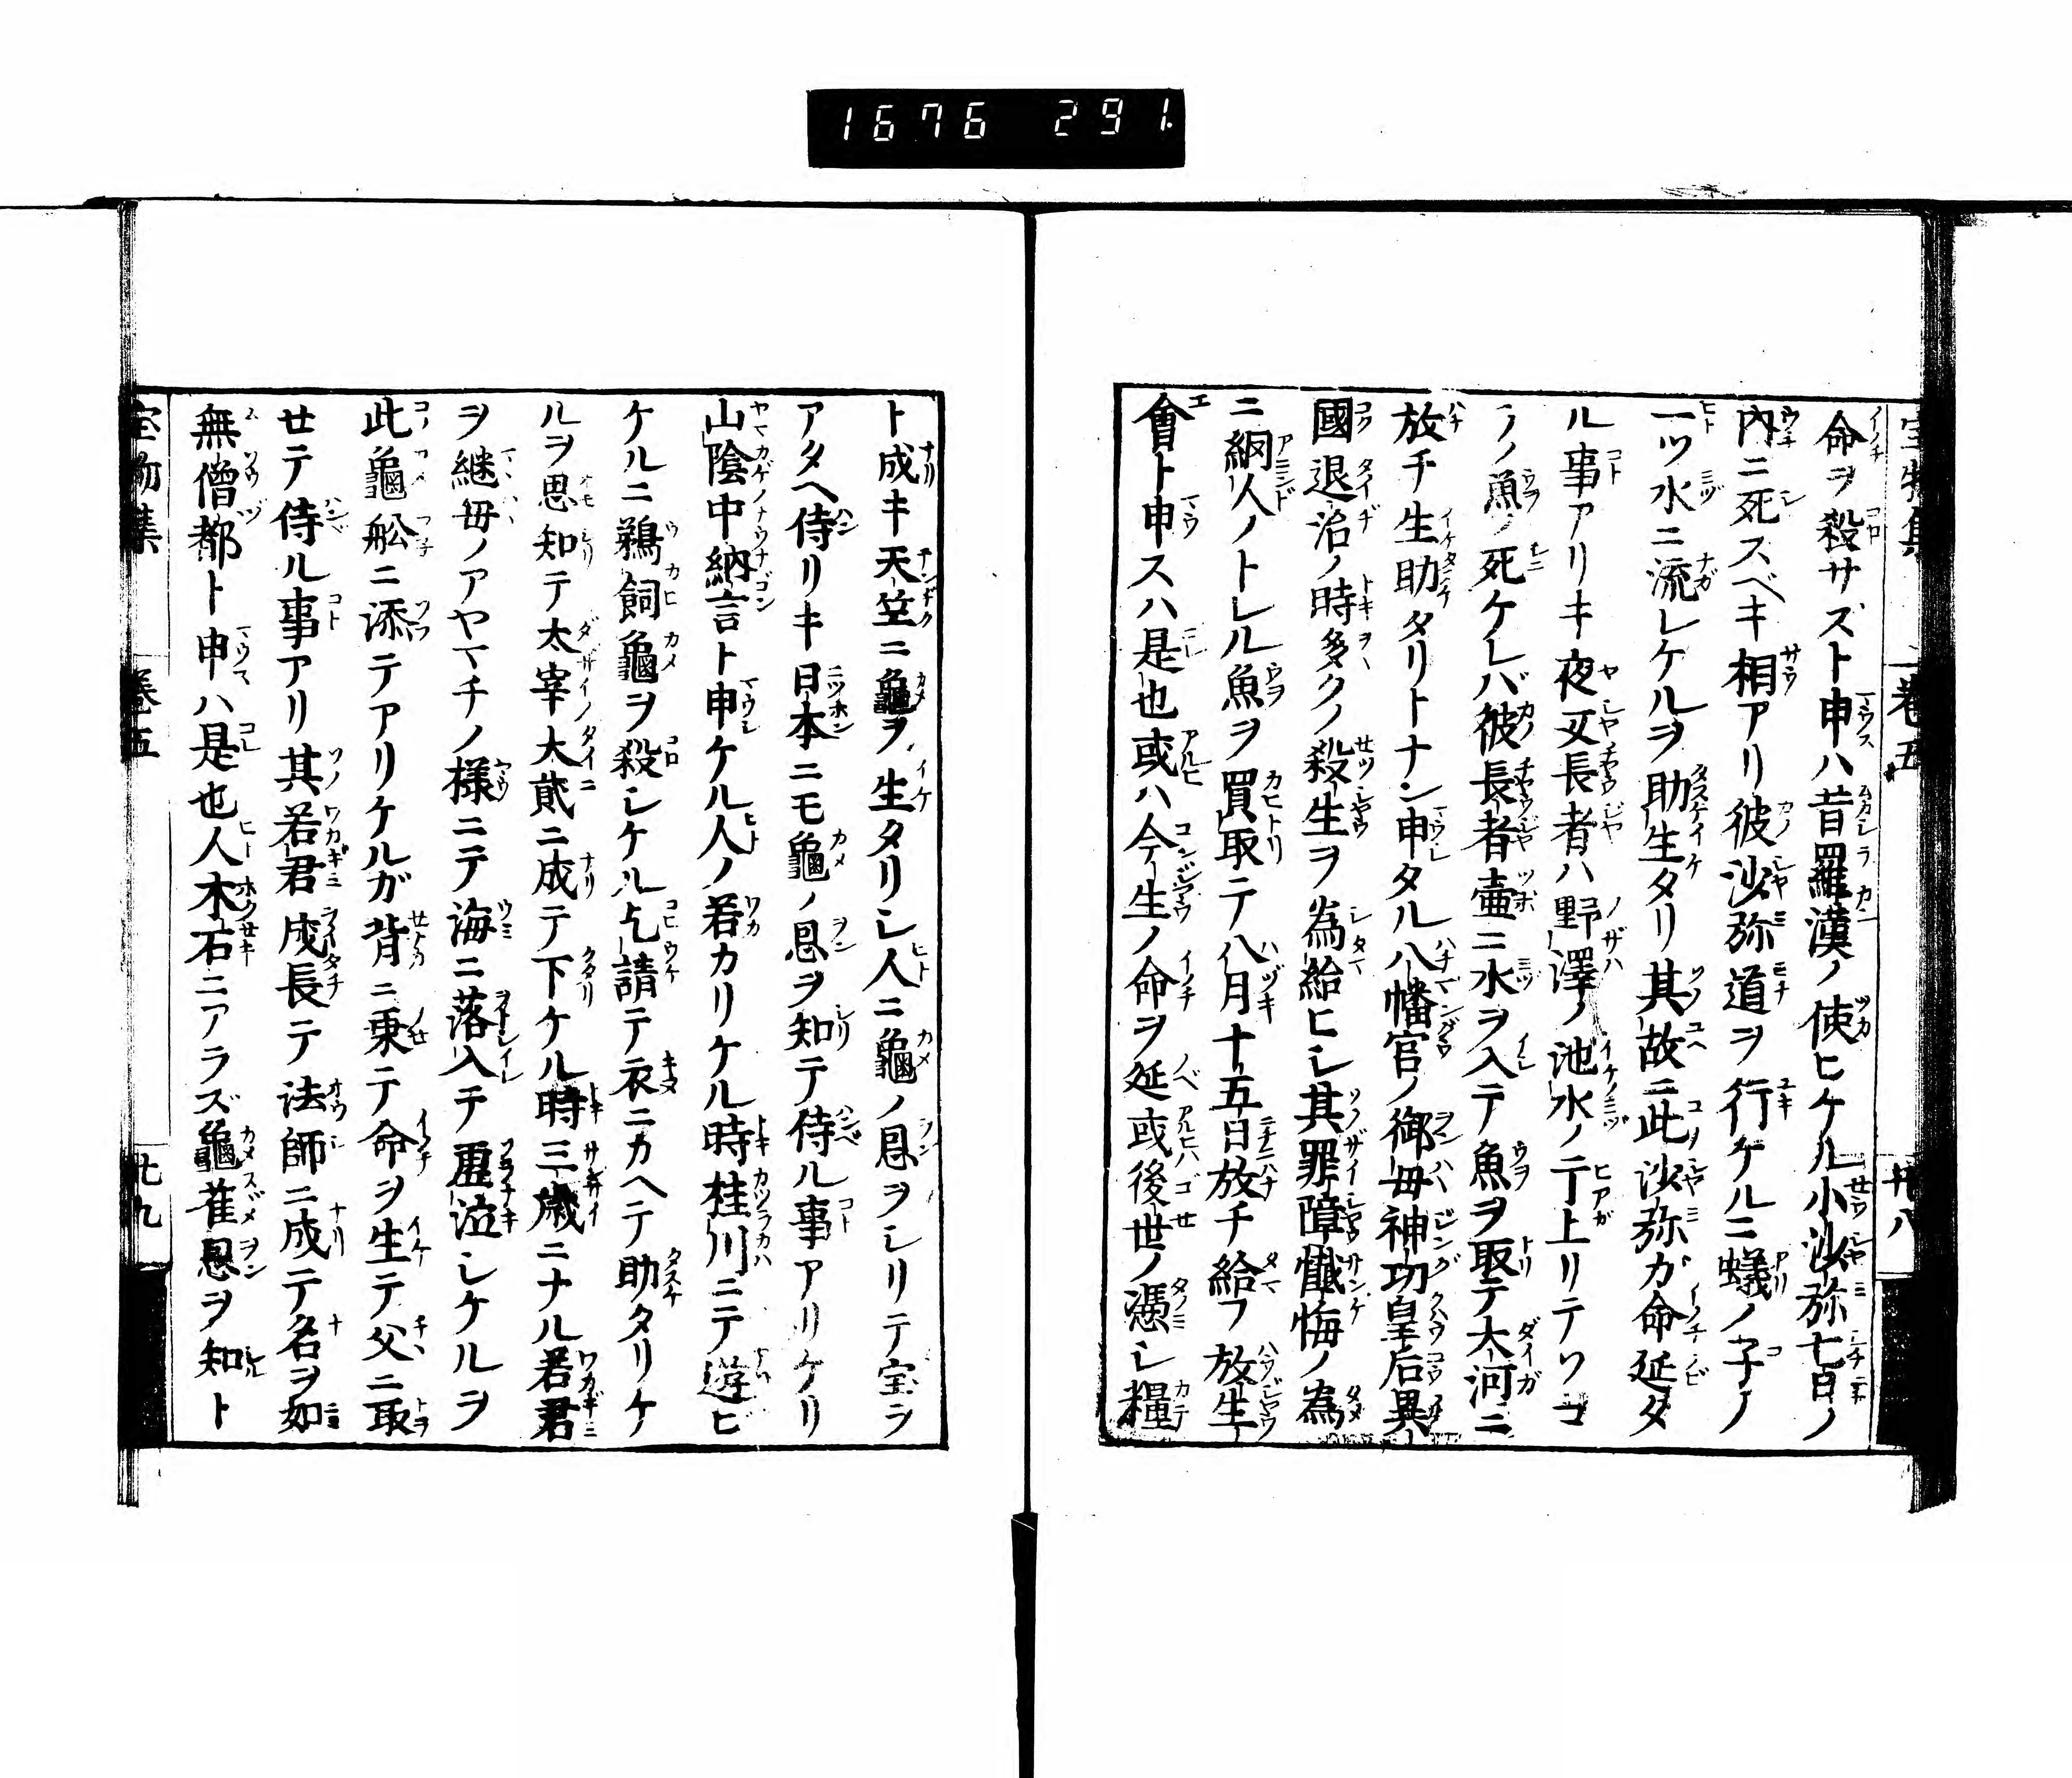 1676 291.
命ヲ殺サズト申ハ昔羅漢ノ使ヒケル小沙弥七日ノ
内ニ死スベキ相アリ彼沙弥道ヲ行ケルニ蟻ノ子ノ
一ツ水ニ流レケルヲ助生タリ其故ニ此沙弥ガ命延タ
ル事アリキ夜叉長者ハ野澤ノ池水ノ干上リテソコ
ノ魚ノ死ケレバ彼長者壷ニ水ヲ入テ魚ヲ取テ大河ニ
放チ生助タリトナン申タル八幡宮ノ御母神功皇后異
國退治ノ時多クノ殺生ヲ為給ヒシ其罪障懺悔ノ為
ニ網人ノトレル魚ヲ買取テ八月十五日放チ給フ放生
會ト申スハ是也或ハ今生ノ命ヲ延或後世ノ憑シ糧
ト成キ天竺ニ龜ヲ生タリシ人ニ龜ノ恩ヲシリテ宝ヲ
アタヘ侍リキ日本ニモ龜ノ恩ヲ知テ侍ル事アリケリ
山陰中納言ト申ケル人ノ若カリケル時桂川ニテ遊ビ
ケルニ鵜飼龜ヲ殺シケル乞請テ衣ニカヘテ助タリケ
ルヲ思知テ太宰大貳ニ成テ下ケル時三歳ニナル若君
ヲ継母ノアヤマチノ様ニテ海ニ落入テ泣シケルヲ
此龜舩ニ添テアリケルガ背ニ乗テ命ヲ生テ父ニ取
セテ侍ル事アリ其若君成長テ法師ニ成テ名ヲ如
無僧都ト申ハ是也人木石ニアラズ龜雀恩ヲ知ト
宝物集 巻五 廿九